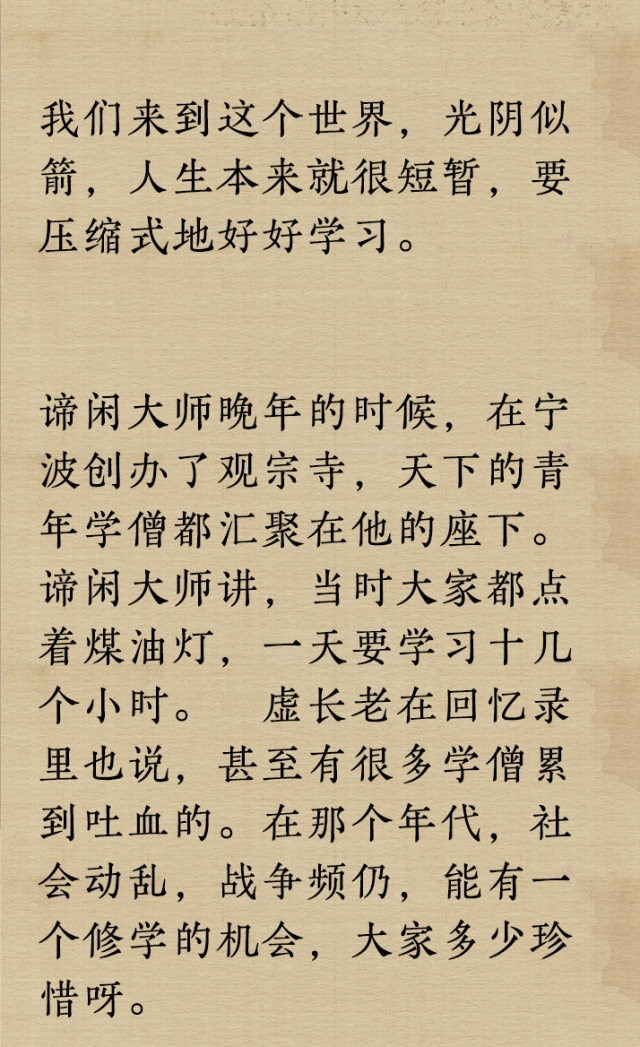 我们来到这个世界，光阴似
箭，人生本来就很短暂，要
压缩式地好好学习。
谛闲大师晚年的时候，在宁
波创办了观宗寺，天下的青
年学僧都汇聚在他的座下。
谛闲大师讲，当时大家都点
着煤油灯，一天要学习十几
个小时。 虚长老在回忆录
里也说，甚至有很多学僧累
到吐血的。在那个年代，社
会动乱，战争频仍，能有一
个修学的机会，大家多少珍
惜呀。